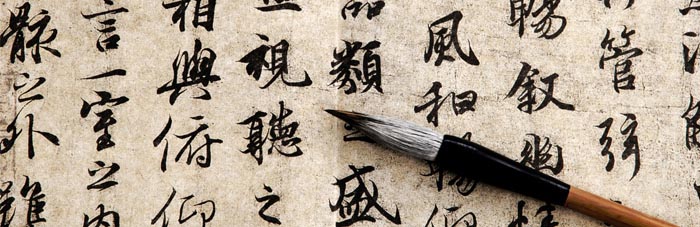 管弦
暢敘幽情
風和暢
品類之盛
視聽之
相與俯仰
言一室之內
骸之外雖